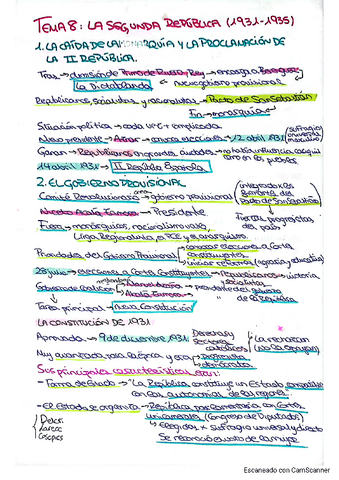 TEMA 8: LA SEGUNDA REPÚBLICA (1931-1935)
1. LA CAÍDA DE LA MONARQUÍA Y LA PROCLAMACIÓN DE
LA II REPÚBLICA.
Tras → dimisión de Primo de Rivera → Rey → encarga a Berenguer
La Dictablanda
nuevo gobierno provisional
Republicanos, socialistas y nacionalistas → Pacto de San Sebastián
Fin → monarquía
Situación política → cada vez + complicada
Nuevo presidente → Aznar → convoca elecciones → 12 abril 1931 (sufragio universal masculino)
Ganan → Republicanos en grandes ciudades
14 abril 1931 → II República Española
2. EL GOBIERNO PROVISIONAL
Comité Revolucionario → gobierno provisional (integrado x los
firmantes del
Pacto de San Sebastián)
Niceto Alcalá Zamora → Presidente
Fuerzas progresistas
del país
Fuera → monárquicos, nacionalismo vasco,
Lliga Regionalista, PCE y anarquismo.
Prioridades del Gobierno Provisional → convocar elecciones a Cortes
constituyentes
iniciar reformas (agraria y educativa)
28 junio → elecciones a Cortes Constituyentes → Republicanos → victoria
socialistas
Gobierno de coalición
Manuel Azaña → presidente del gobierno
Alcalá Zamora → " de la República
Tarea principal → Nueva Constitución
LA CONSTITUCIÓN DE 1931
Aprobada → 9 de diciembre 1931
Derechas y
sectores
católicos
La rechazan
Muy avanzada para la época y era → Progresista
democrática
Sus principales características eran:
- Forma de Estado → "La República constituye un Estado, compatible
con las autonomías de las regiones".
- El Estado se organiza → República parlamentaria con Cortes
unicamerales (Congreso de Diputados)
→ Elegidas x sufragio universal y directo
Se reconoció el voto de la mujer
Escaneado con CamScanner